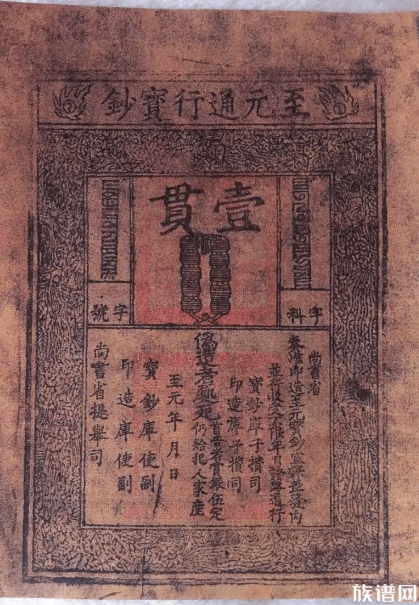 至元通行寶鈔
壹貫
字料
字號
尚書省
奏准印造至元寶鈔宣課差發內
並行收受不限年月諸路通行
寶鈔庫子攢司
印造庫子攢司
偽造者處死
首告者賞銀伍定
仍給犯人家產
至元年月日
寶鈔庫使副
印造庫使副
尚書省提舉司
族谱网